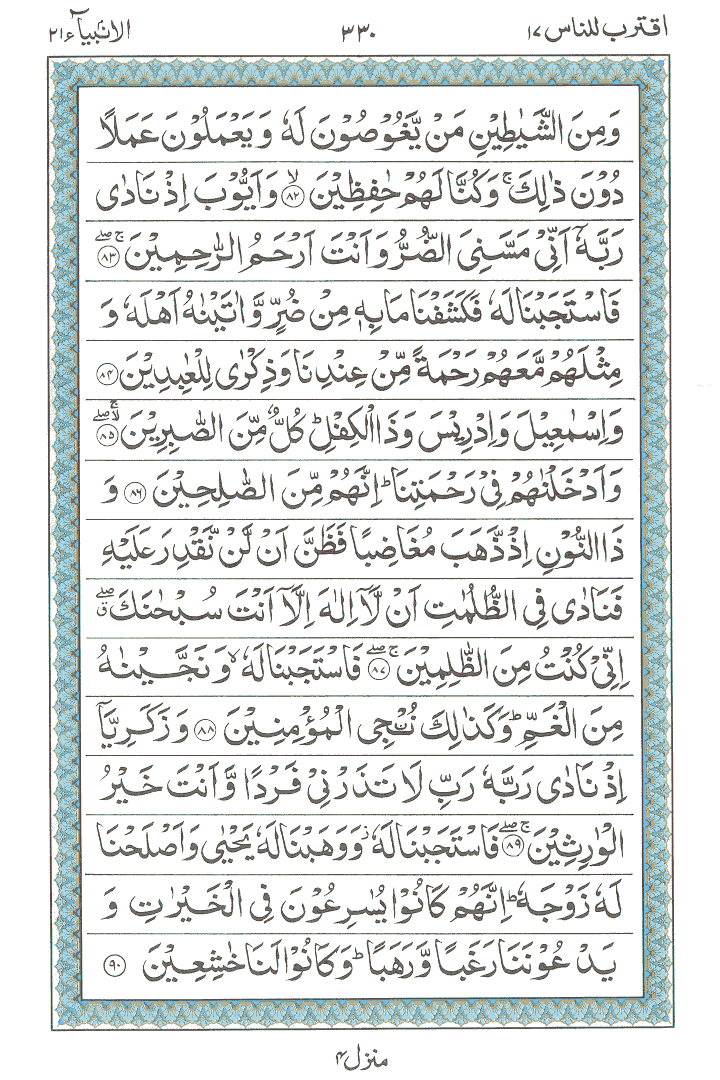 اقترب للناس ١٧ ٣٣٠ الانبیآء ٢١
وَمِنَ الشَّیٰطِیْنِ مَنْ یَّغُوْصُوْنَ لَهٗ وَ یَعْمَلُوْنَ عَمَلًا
دُوْنَ ذٰلِكَ ۚ وَكُنَّا لَهُمْ حٰفِظِیْنَ ﴿۸۲﴾ۙ وَاَیُّوْبَ اِذْ نَادٰی
رَبَّهٗۤ اَنِّیْ مَسَّنِیَ الضُّرُّ وَاَنْتَ اَرْحَمُ الرّٰحِمِیْنَ ﴿۸۳﴾ۚۖ
فَاسْتَجَبْنَا لَهٗ فَكَشَفْنَا مَا بِهٖ مِنْ ضُرٍّ وَّاٰتَیْنٰهُ اَهْلَهٗ وَ
مِثْلَهُمْ مَّعَهُمْ رَحْمَةً مِّنْ عِنْدِنَا وَذِكْرٰی لِلْعٰبِدِیْنَ ﴿۸۴﴾
وَاِسْمٰعِیْلَ وَاِدْرِیْسَ وَذَا الْكِفْلِ ؕ كُلٌّ مِّنَ الصّٰبِرِیْنَ ﴿۸۵﴾ۚۖ
وَاَدْخَلْنٰهُمْ فِیْ رَحْمَتِنَا ؕ اِنَّهُمْ مِّنَ الصّٰلِحِیْنَ ﴿۸۶﴾ وَ
ذَا النُّوْنِ اِذْ ذَّهَبَ مُغَاضِبًا فَظَنَّ اَنْ لَّنْ نَّقْدِرَ عَلَیْهِ
فَنَادٰی فِی الظُّلُمٰتِ اَنْ لَّاۤ اِلٰهَ اِلَّاۤ اَنْتَ سُبْحٰنَكَ ۖۗ
اِنِّیْ كُنْتُ مِنَ الظّٰلِمِیْنَ ﴿۸۷﴾ۚۖ فَاسْتَجَبْنَا لَهٗ ۙ وَ نَجَّیْنٰهُ
مِنَ الْغَمِّ ؕ وَكَذٰلِكَ نُـنْۨجِی الْمُؤْمِنِیْنَ ﴿۸۸﴾ وَ زَكَرِیَّاۤ
اِذْ نَادٰی رَبَّهٗ رَبِّ لَا تَذَرْنِیْ فَرْدًا وَّاَنْتَ خَیْرُ
الْوٰرِثِیْنَ ﴿۸۹﴾ۚۖ فَاسْتَجَبْنَا لَهٗ ؗ وَوَهَبْنَا لَهٗ یَحْیٰی وَاَصْلَحْنَا
لَهٗ زَوْجَهٗ ؕ اِنَّهُمْ كَانُوْا یُسٰرِعُوْنَ فِی الْخَیْرٰتِ وَ
یَدْعُوْنَنَا رَغَبًا وَّرَهَبًا ؕ وَكَانُوْا لَنَا خٰشِعِیْنَ ﴿۹۰﴾
منزل ۴